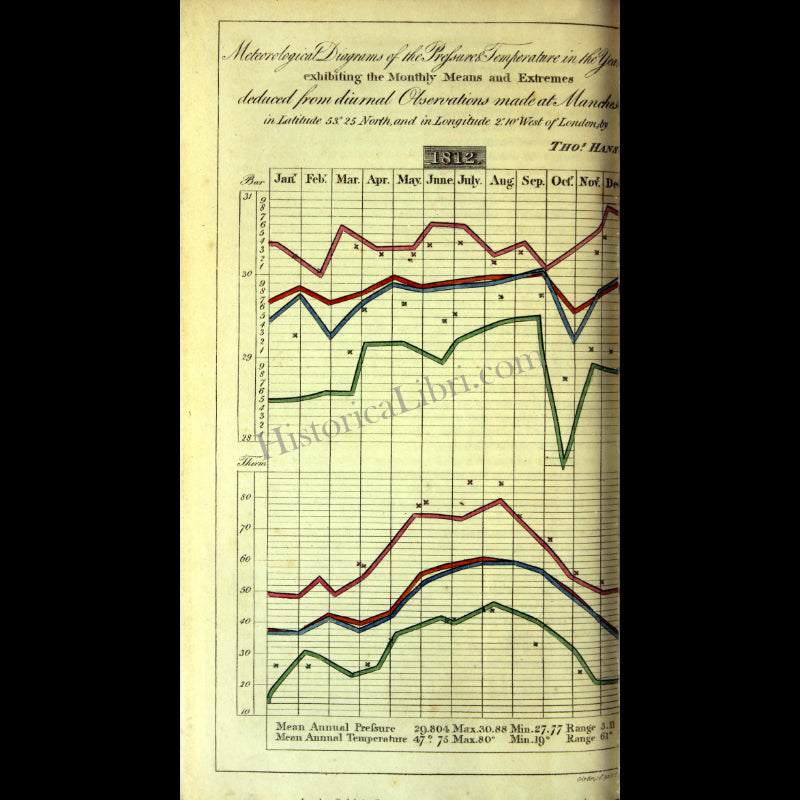 Meteorological Diagrams of the Pressure & Temperature in the Year
exhibiting the Monthly Means and Extremes
deduced from diurnal Observations made at Manches
in Latitude 53° 25 North, and in Longitude 2° 10' West of London, by
THOS. HANS
1812.
Bar Jany. Feby. Mar. Apr. May. June. July. Aug. Sep. Octr. Nov. De
31
9
8
7
6
5
4
3
2
1
30
9
8
7
6
5
4
3
2
1
29
9
8
7
6
5
4
3
2
28
HistoricaLibri.com
Therm
80
70
60
50
40
30
20
10
Mean Annual Pressure 29.804 Max. 30.88 Min. 27.77 Range 3.11
Mean Annual Temperature 47° 75 Max. 80° Min. 19° Range 61°